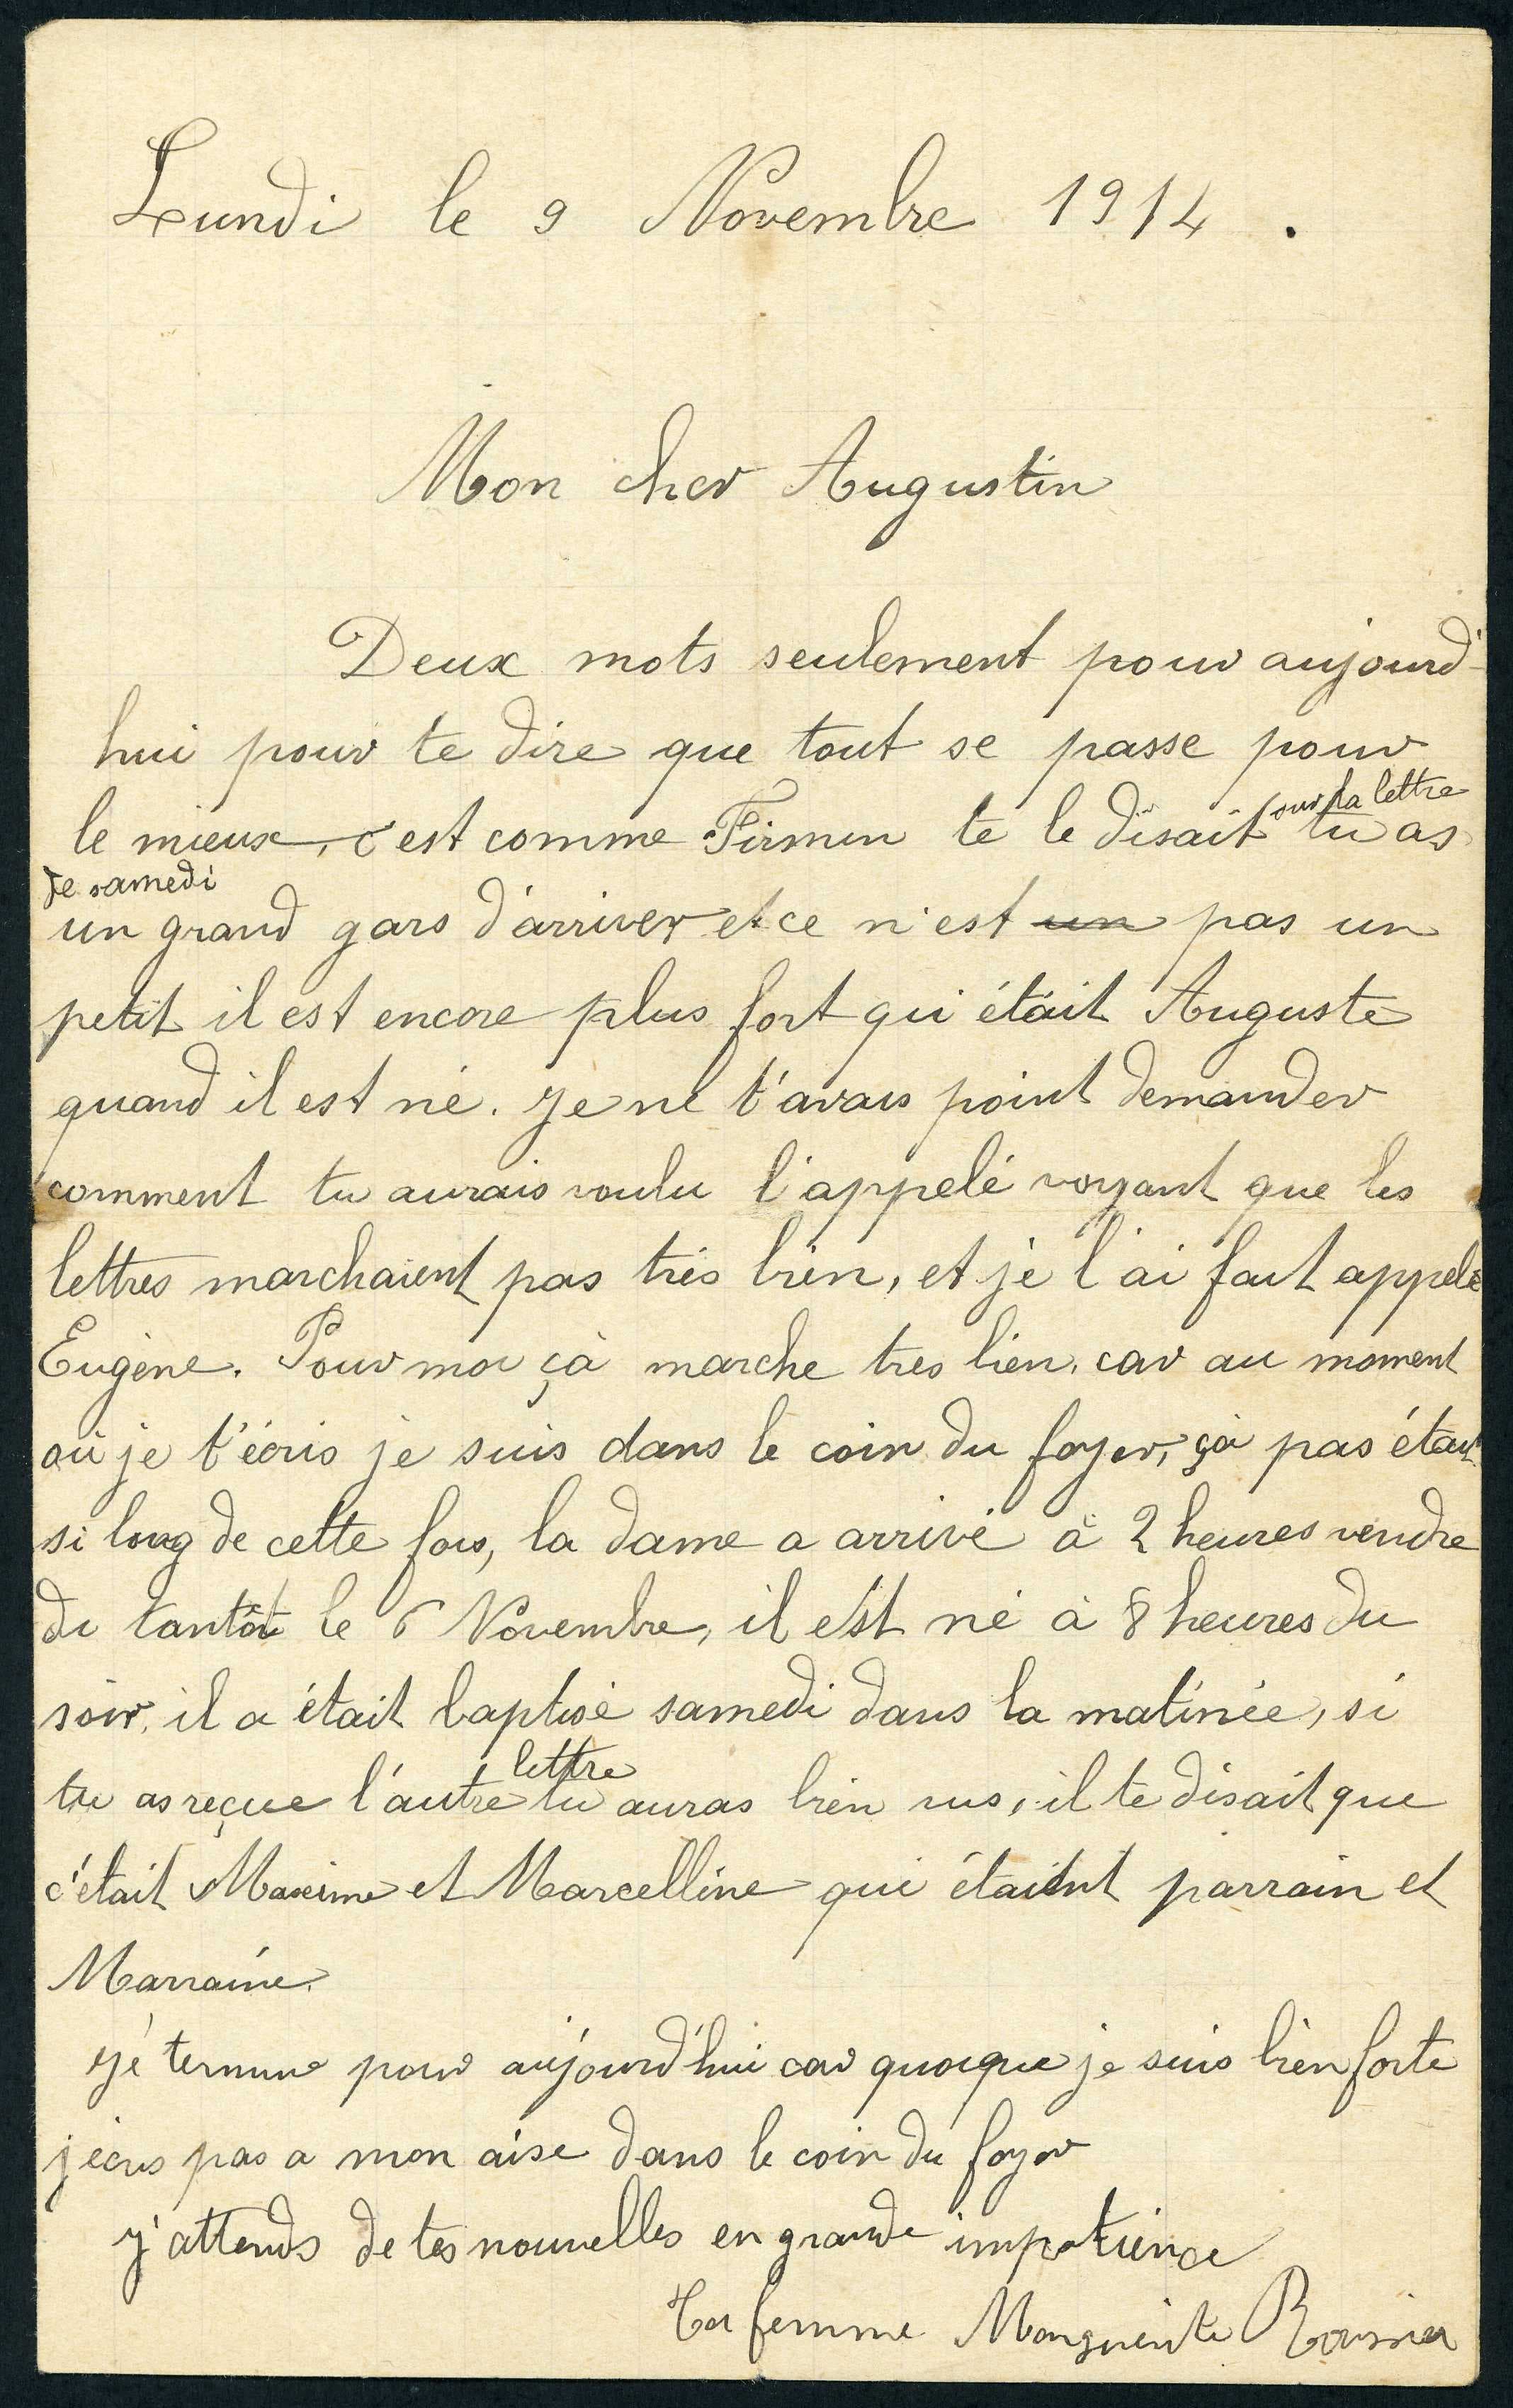 Lundi le 9 Novembre 1914.
Mon cher Augustin
Deux mots seulement pour aujourd'-
hui pour te dire que tout se passe pour
le mieux, c'est comme Firmin te le disait sur la lettre tu as
de samedi
un grand gars d'arriver et ce n'est un pas un
petit il est encore plus fort qui était Auguste
quand il est né. Je ne t'avais point demander
comment tu aurais voulu l'appelé voyant que les
lettres marchaient pas très bien, et je l'ai fait appelé
Eugène. Pour moi çà marche tres bien, car au moment
où je t'écris je suis dans le coin du foyer, çà pas était
si long de cette fois, la dame a arrivé à 2 heures vendre
di tantôt le 6 Novembre, il est né à 8 heures du
soir, il a était baptisé samedi dans la matinée, si
tu as reçue l'autre lettre tu auras bien vus, il te disait que
c'était Maxime et Marcelline qui étaient parrain et
Marraine.
Je termine pour aujourd'hui car quoique je suis bien forte
j'écris pas a mon aise dans le coin du foyer
J'attends de tes nouvelles en grande impatience
Ta femme Marguerite